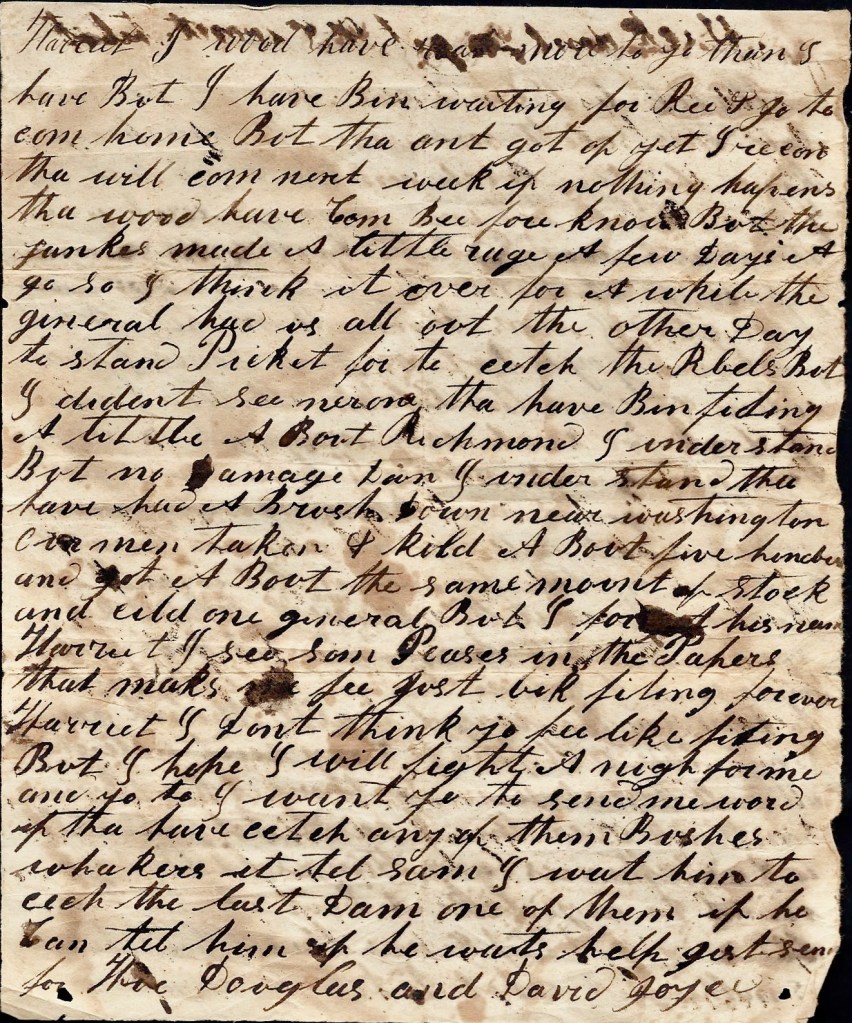 Harriet I wood have more to yo than I
have But I have Bin waiting for Ree & yo to
com home But tha ant got of yet I recon
tha will com next week if nothing hapens
tha wood have Com Bee fore know But the
yankes made A little rage A few Days A
go so I think it over for A while the
gineral had us all out the other Day
to stand Picket for to cetch the Rbels But
I dident see nerone tha have Bin fiting
A little A Bout Richmond I understand
But no Damage Don I under stand tha
have had A Brush Down near washington
our men taken & kild A Bout five hundred
and got A Bout the same mount of stock
and cild one general But I his name
Harriet I see som Peases in the Papers
that maks me fee gost lik fiting forever
Harriet I Dont think yo fee like fiting
But I hope I will fight A nigh for me
and yo to I want yo to send me word
if tha have cetch any of them Bushes
whakers it tel sam I wat him to
cech the last Dam one of them if he
Can tel him if he wats help gost sen
for Thoe Douglas and David Joyce